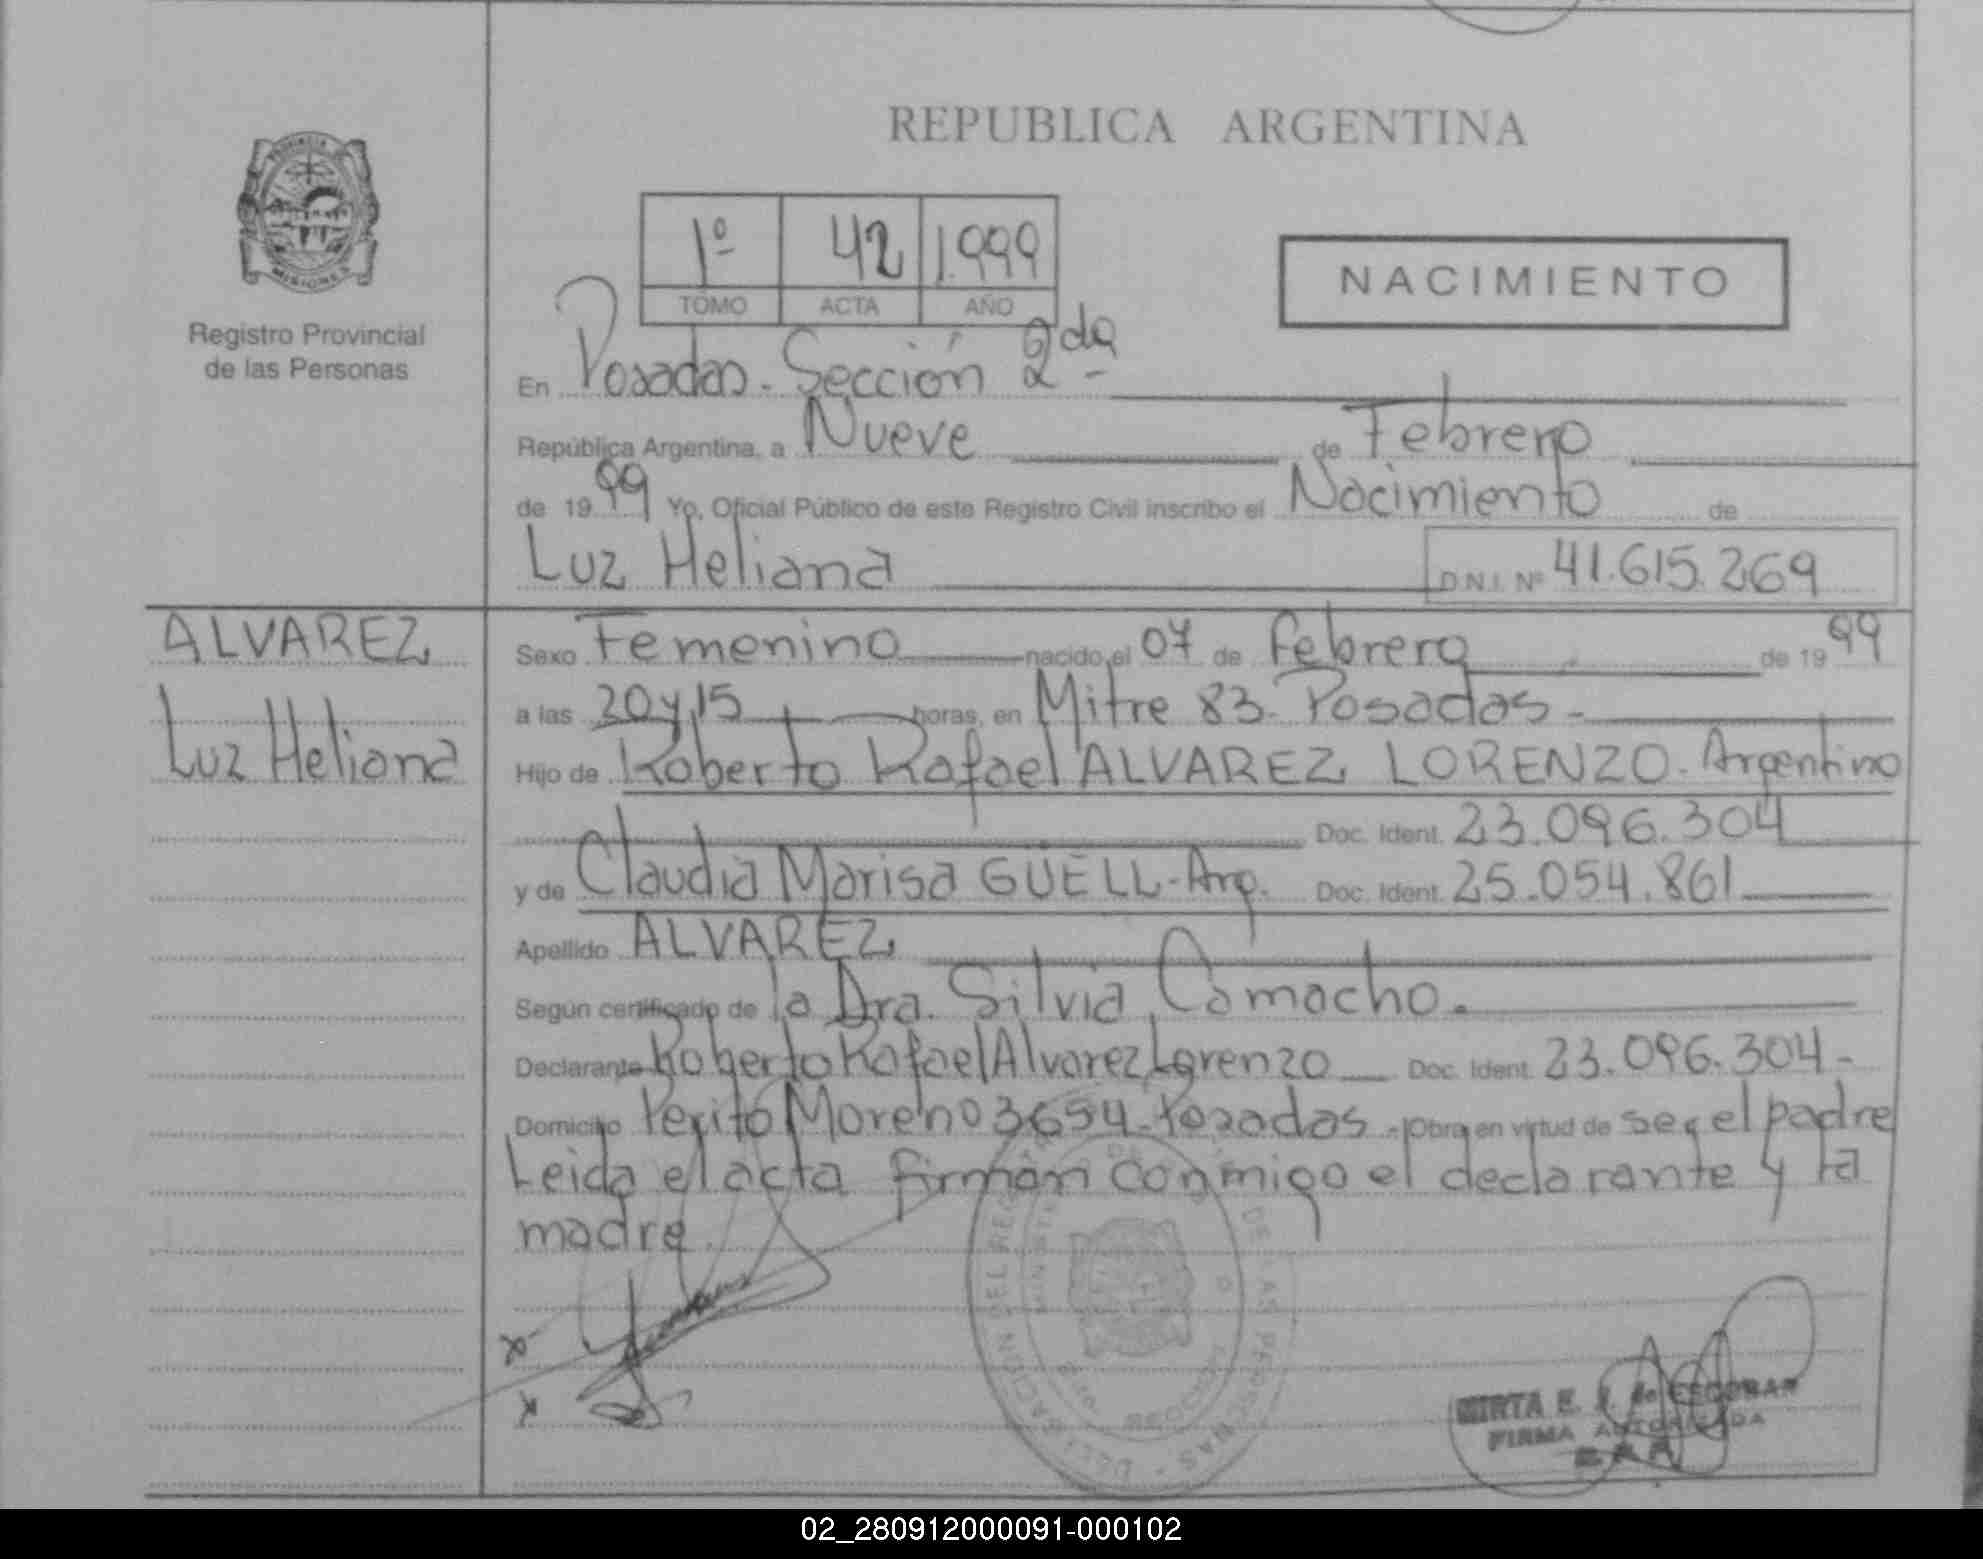 REPUBLICA ARGENTINA
PROVINCIA DE
MISIONES
Registro Provincial
de las Personas
1º 42 1.999
TOMO ACTA AÑO
NACIMIENTO
En Posadas. Sección 2da
República Argentina, a Nueve de Febrero
de 1999 Yo, Oficial Público de este Registro Civil inscribo el Nacimiento de
Luz Heliana D.N.I. Nº 41.615.269
ALVAREZ
Luz Heliana
Sexo Femenino nacido el 07 de Febrero de 1999
a las 20 y 15 horas, en Mitre 83 - Posadas -
Hijo de Roberto Rafael ALVAREZ LORENZO - Argentino
Doc. Ident. 23.096.304
y de Claudia Marisa GÜELL - Arg. Doc. Ident. 25.054.861
Apellido ALVAREZ
Según certificado de la Dra. Silvia Camacho.
Declarante Roberto Rafael Alvarez Lorenzo Doc. Ident. 23.096.304 -
Domicilio Perito Moreno 3654 - Posadas - Obra en virtud de ser el padre
Leida el acta firman conmigo el declarante y la
madre.
x
x
MIRTA E. de ESCOBAR
FIRMA AUTORIZADA
02_280912000091-000102